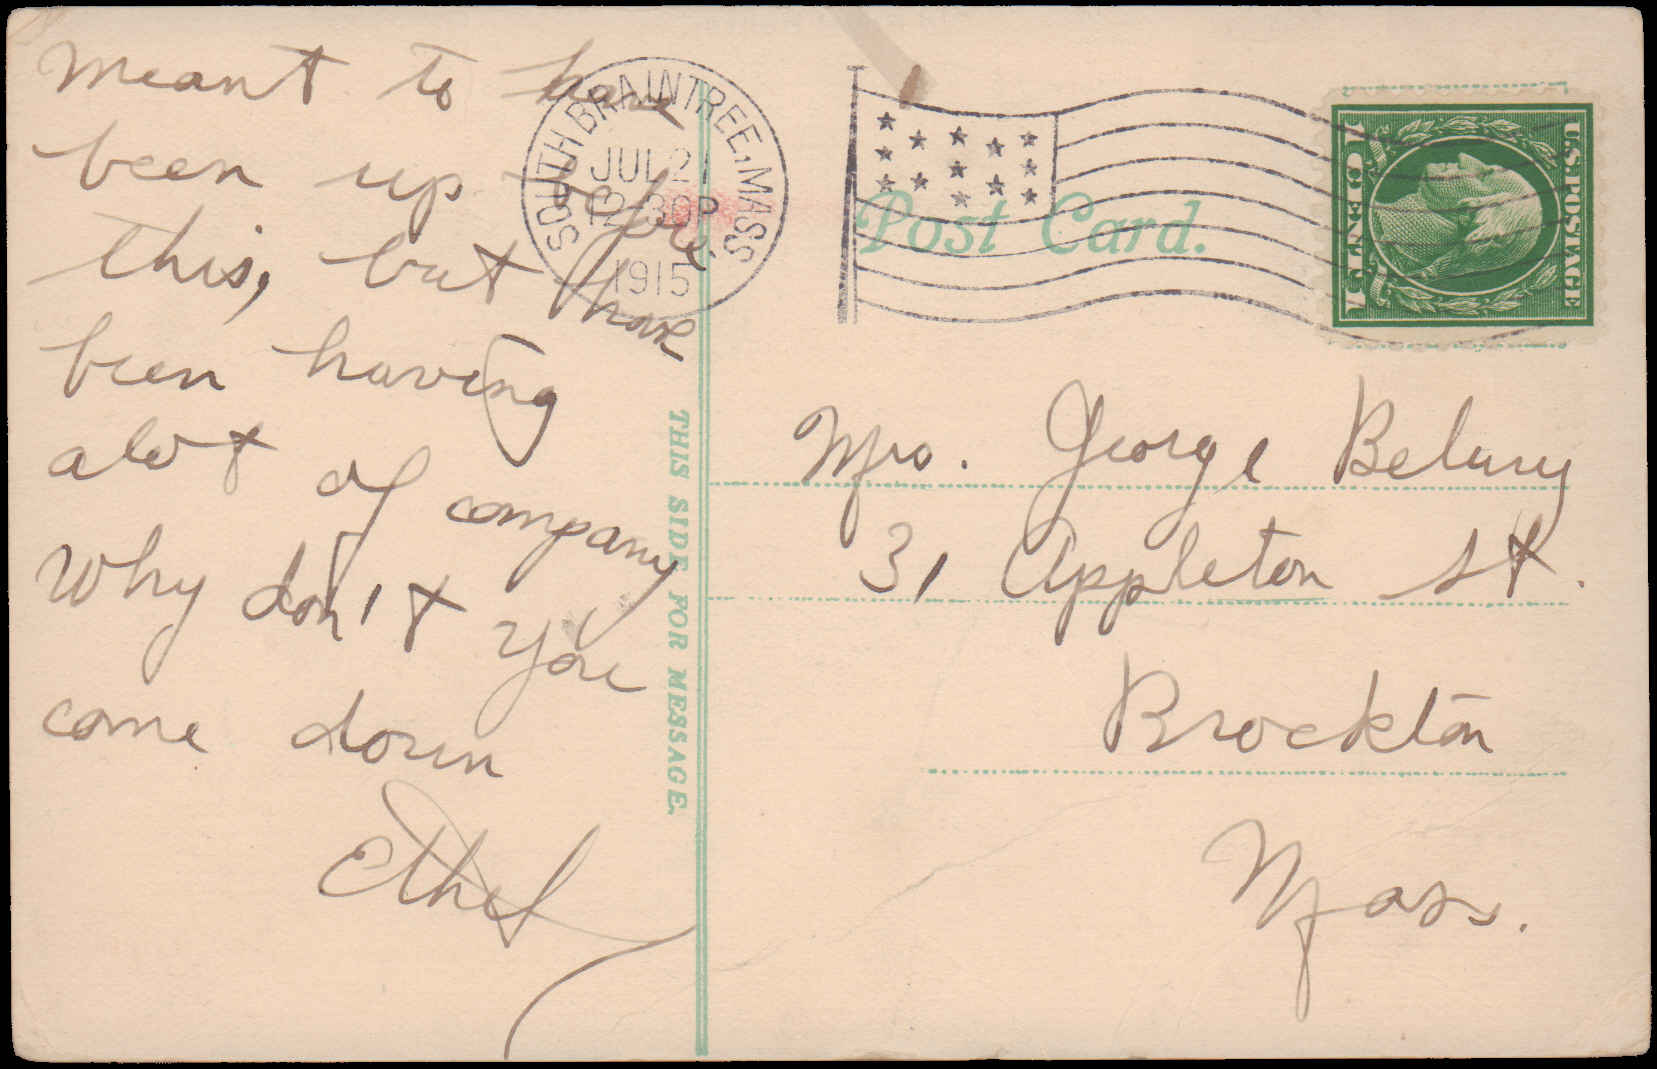 Meant to have
been up before
this, but have
been having
alot of company
Why don't you
come down
Ethel
THIS SIDE FOR MESSAGE.
SOUTH BRAINTREE, MASS
JUL 21
12-30P
1915
Post Card.
U.S. POSTAGE
1 ONE CENT 1
Mrs. George Belury
31 Appleton St.
Brockton
Mass.